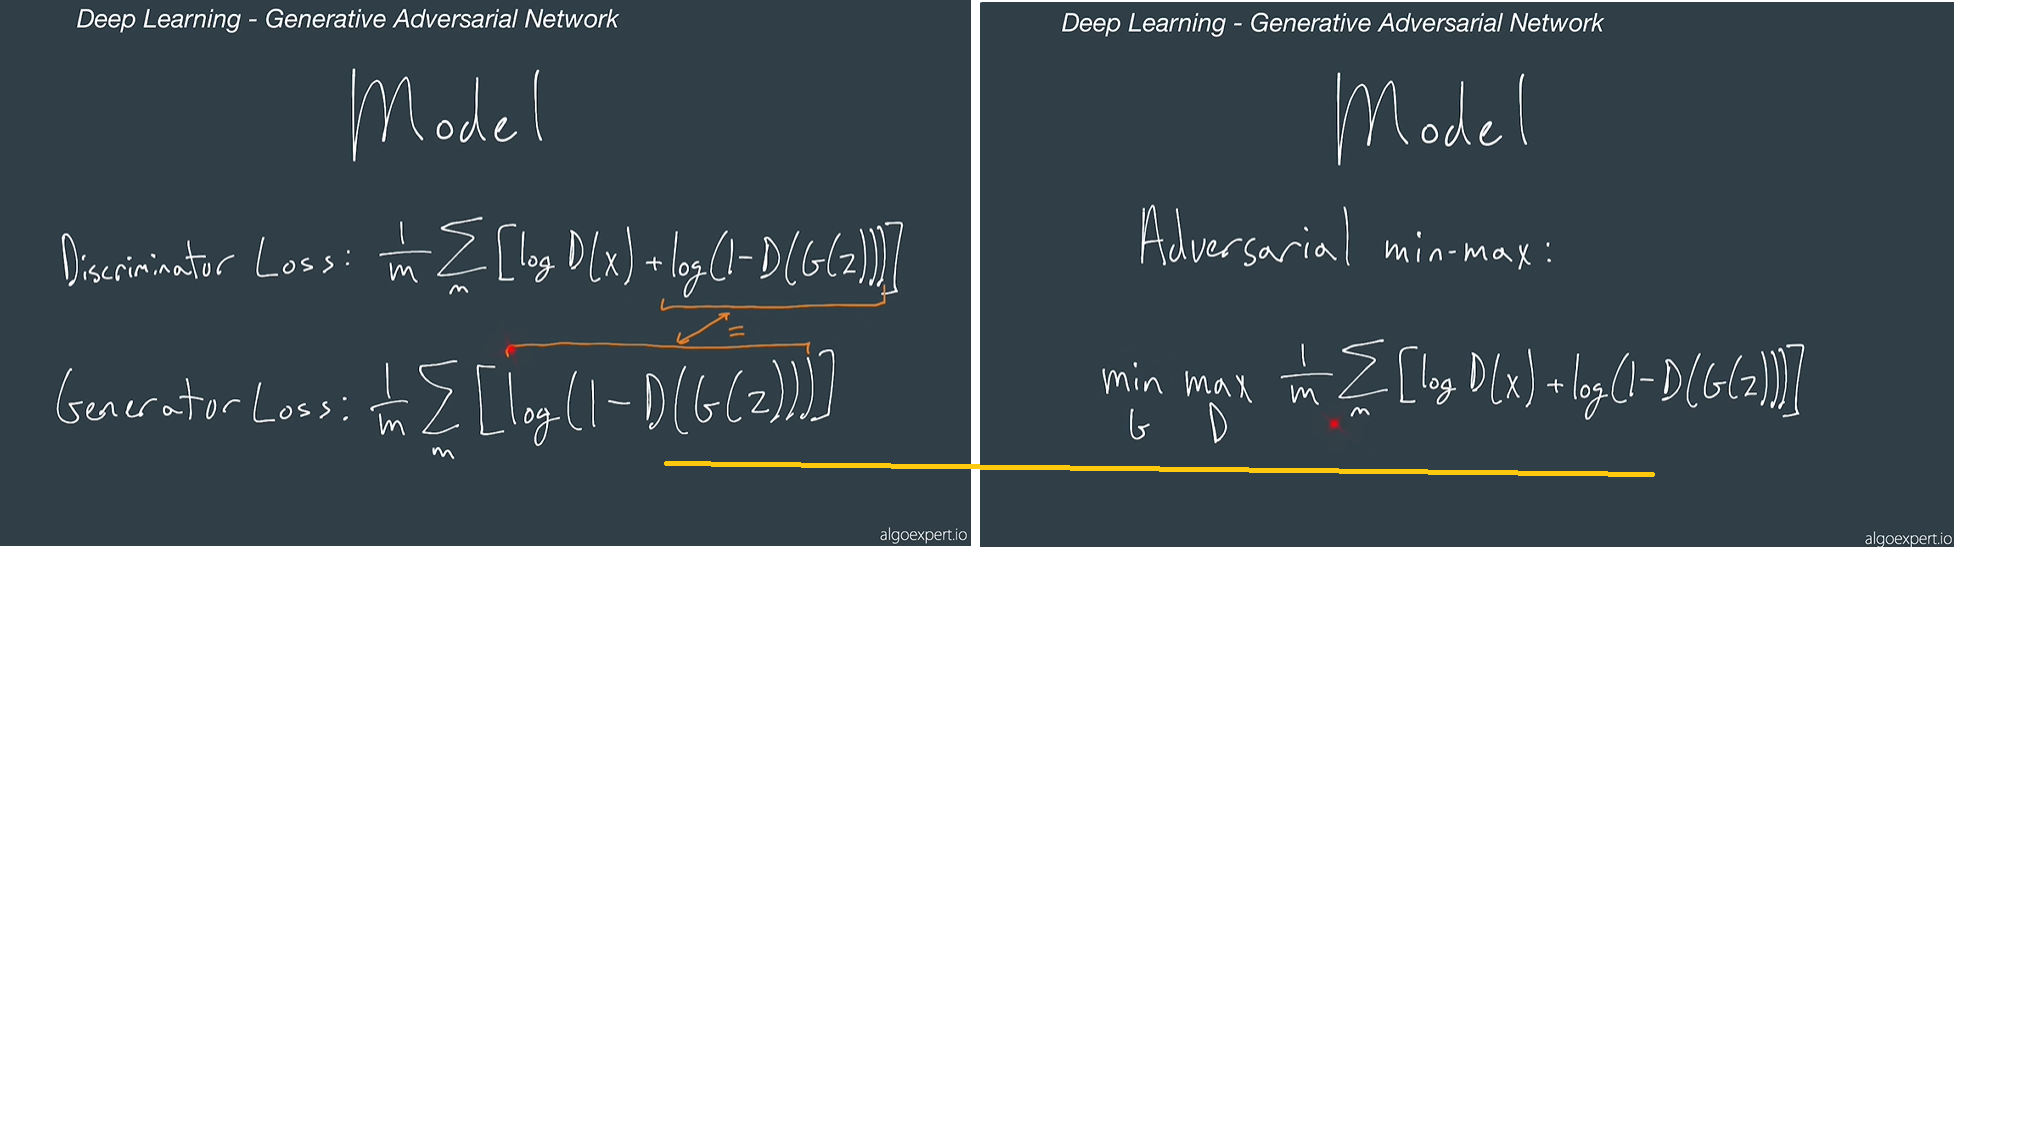 Deep Learning - Generative Adversarial Network
Model
Discriminator Loss: 1/m ∑_m [log D(x) + log(1-D(G(z)))]
=
Generator Loss: 1/m ∑_m [log(1-D(G(z)))]
algoexpert.io
Deep Learning - Generative Adversarial Network
Model
Adversarial min-max:
min_G max_D 1/m ∑_m [log D(x) + log(1-D(G(z)))]
algoexpert.io